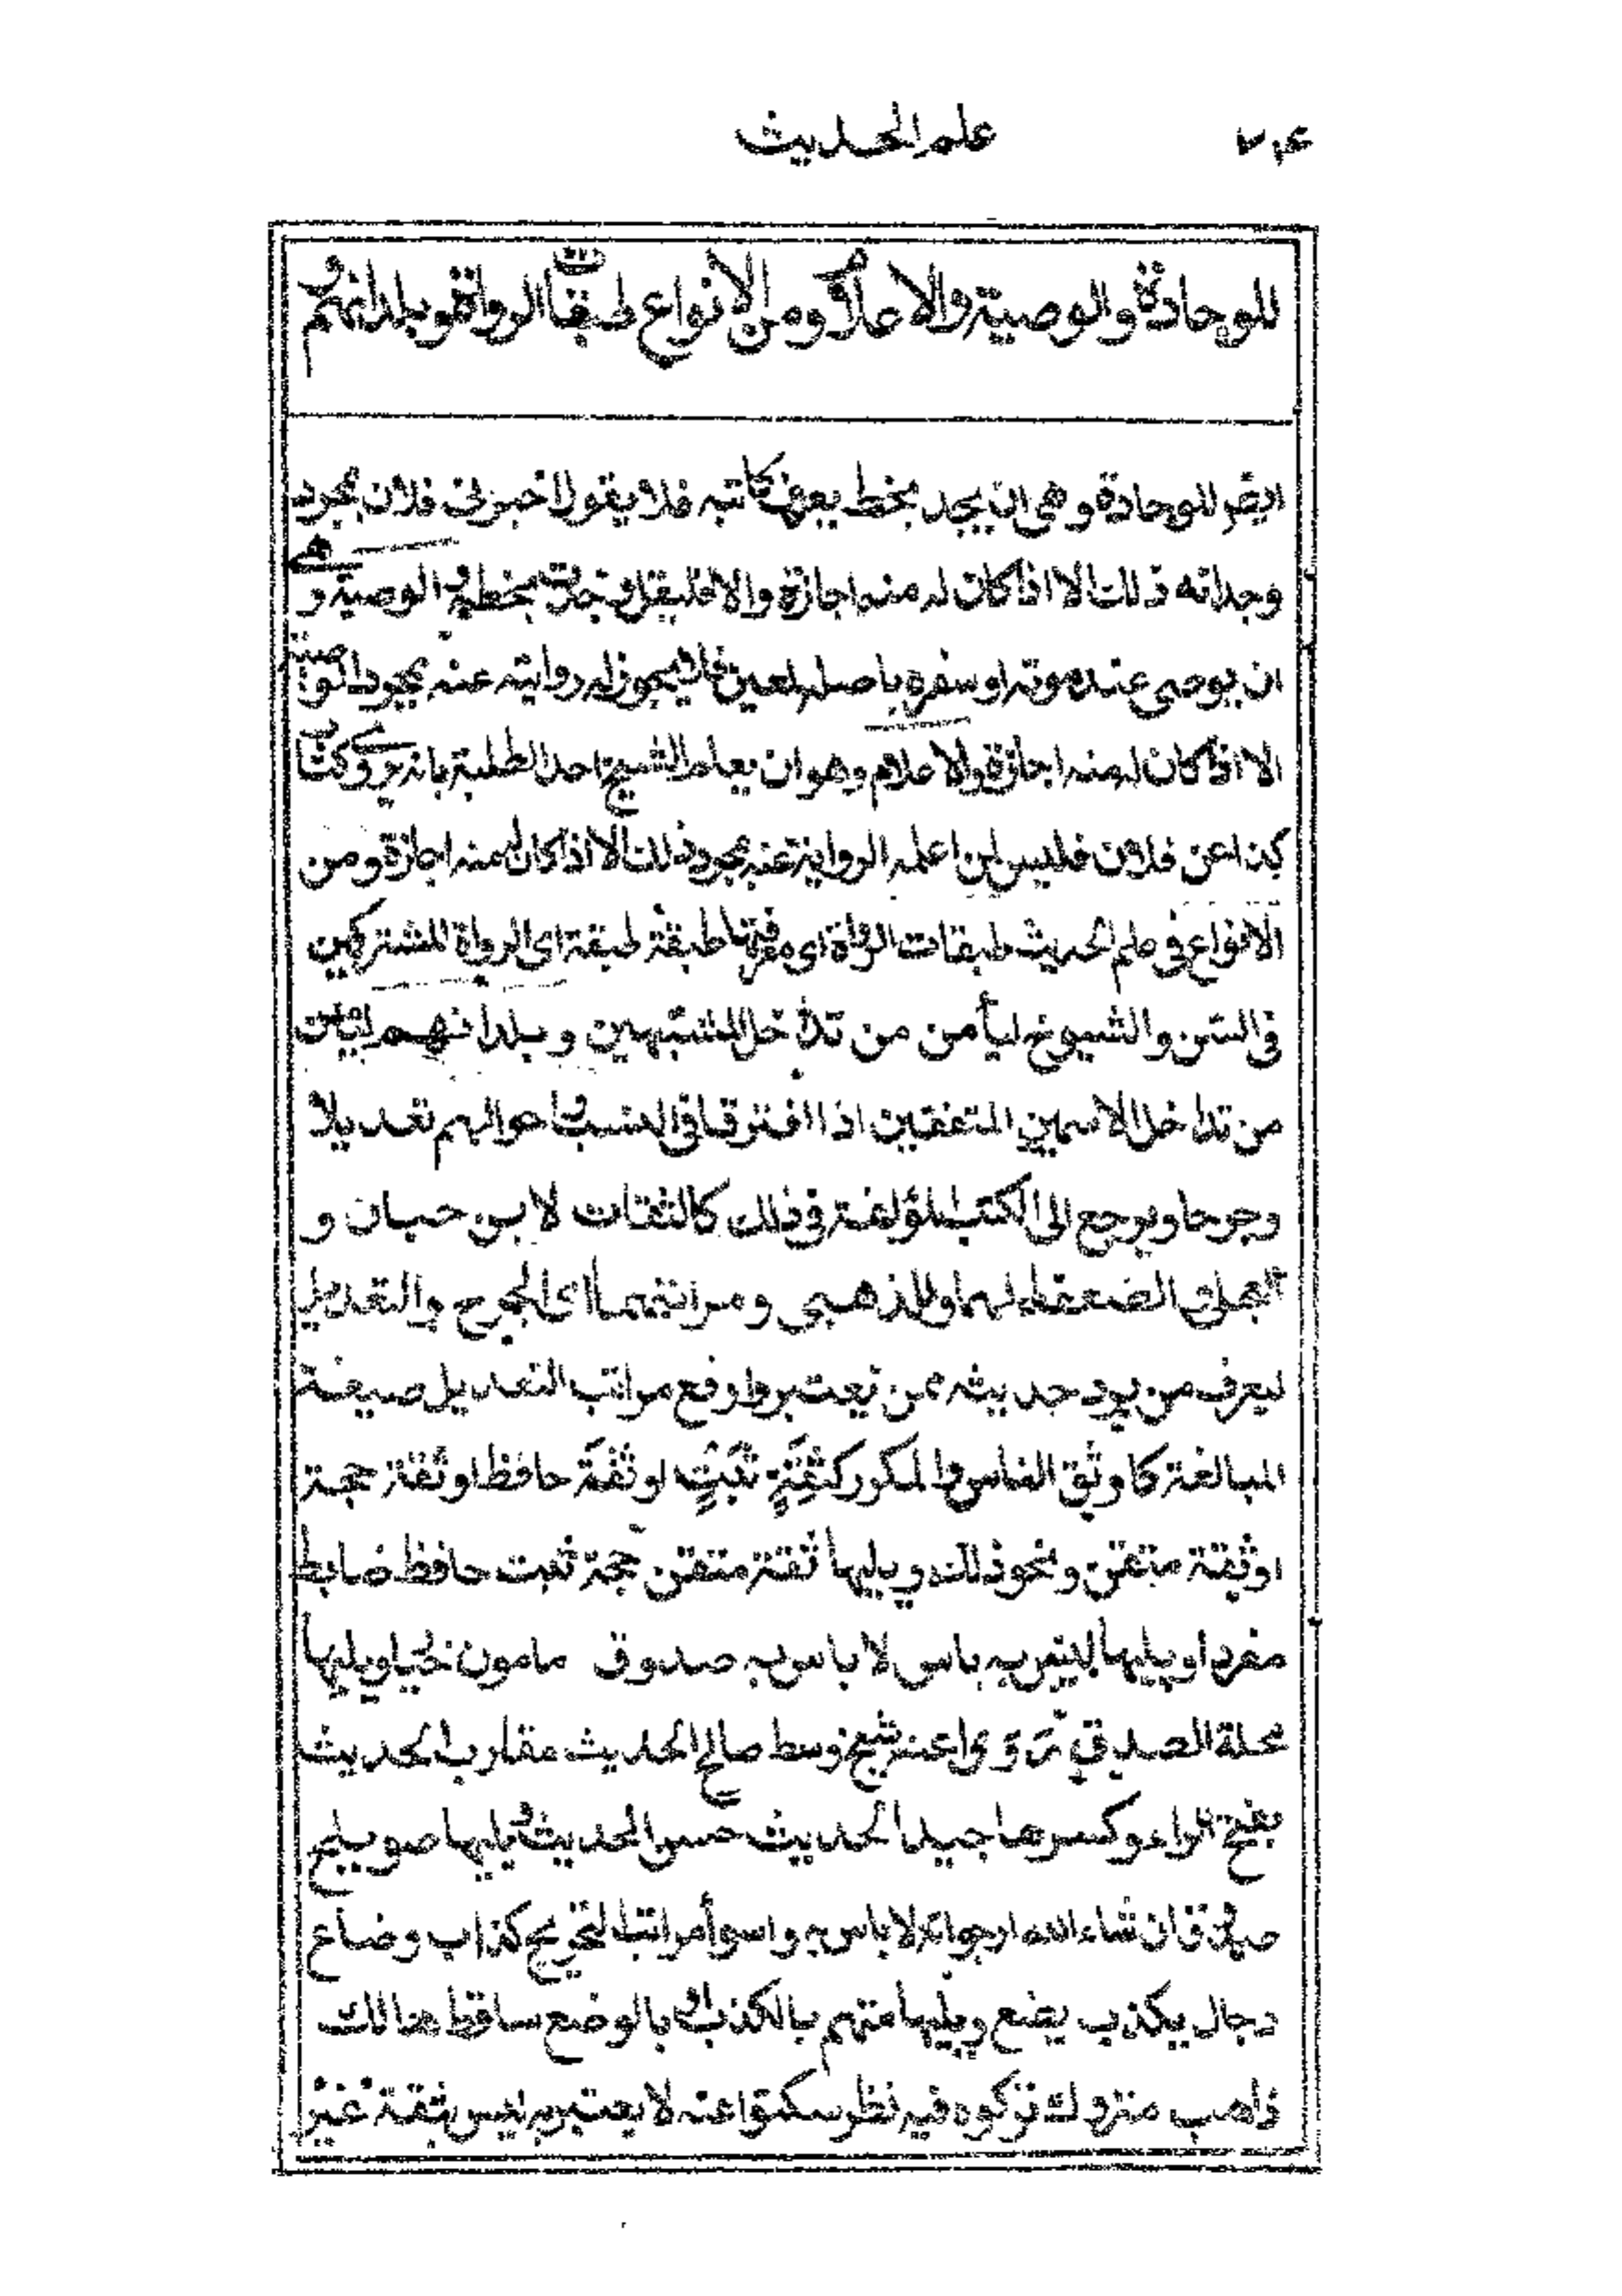 ٧٤ علم الحديث
للوجادة والوصية والاعلام ومن الانواع طبقات الرواة وبلدانهم و
ايضر للوجادة وهى ان يجد بخط يعرف كاتبه فلا يقول اخبرنى فلان بمجرد
وجدانه ذلك الا اذا كان له منه اجازة والا فليقل وجدت بخطه والوصية وهى
ان يوصى عند موته او سفره باصله لمعين فلا يجوز له روايته عنه بمجرد الوصية
الا اذا كان له منه اجازة والاعلام وهو ان يعلم الشيخ احد الطلبة بانه يروى كتاب
كذا عن فلان فليس لمن اعلمه الرواية عنه بمجرد ذلك الا اذا كان له منه اجازة ومن
الانواع فى علم الحديث طبقات الرواة اى معرفتها طبقة طبقة اى الرواة المشتركين
فى السن والشيوخ ليأمن من تداخل المشتبهين وبلدانهم ليأمن
من تداخل الاسمين المتفقين اذا افترقا فى النسب واحوالهم تعديلا
وجرحا ويرجع الى الكتب المؤلفة فى ذلك كالثقات لابن حبان و
العجلى والضعفاء لهما وللذهبى ومراتبهما اى الجرح والتعديل
ليعرف من يرد حديثه ممن يعتبر وارفع مراتب التعديل صيغة
المبالغة كاوثق الناس والمكرر كثِقَةٍ ثَبَتٍ او ثقة حافظ او ثقة حجة
او ثقة متقن ونحو ذلك ويليها ثقة متقن حجة ثبت حافظ ضابط
مفردا ويليها ليس به باس لا باس به صدوق مامون خيار ويليها
محله الصدق رَوَوا عنه شيخ وسط صالح الحديث مقارب الحديث
بفتح الراء وكسرها جيد الحديث حسن الحديث ويليها صويلح
صدوق ان شاء الله ارجوا انه لا باس به واسوأ مراتب التجريح كذاب وضاع
دجال يكذب يضع ويليها متهم بالكذب او بالوضع ساقط هالك
ذاهب متروك تركوه فيه نظر سكتوا عنه لا يعتبر به ليس بثقة غير